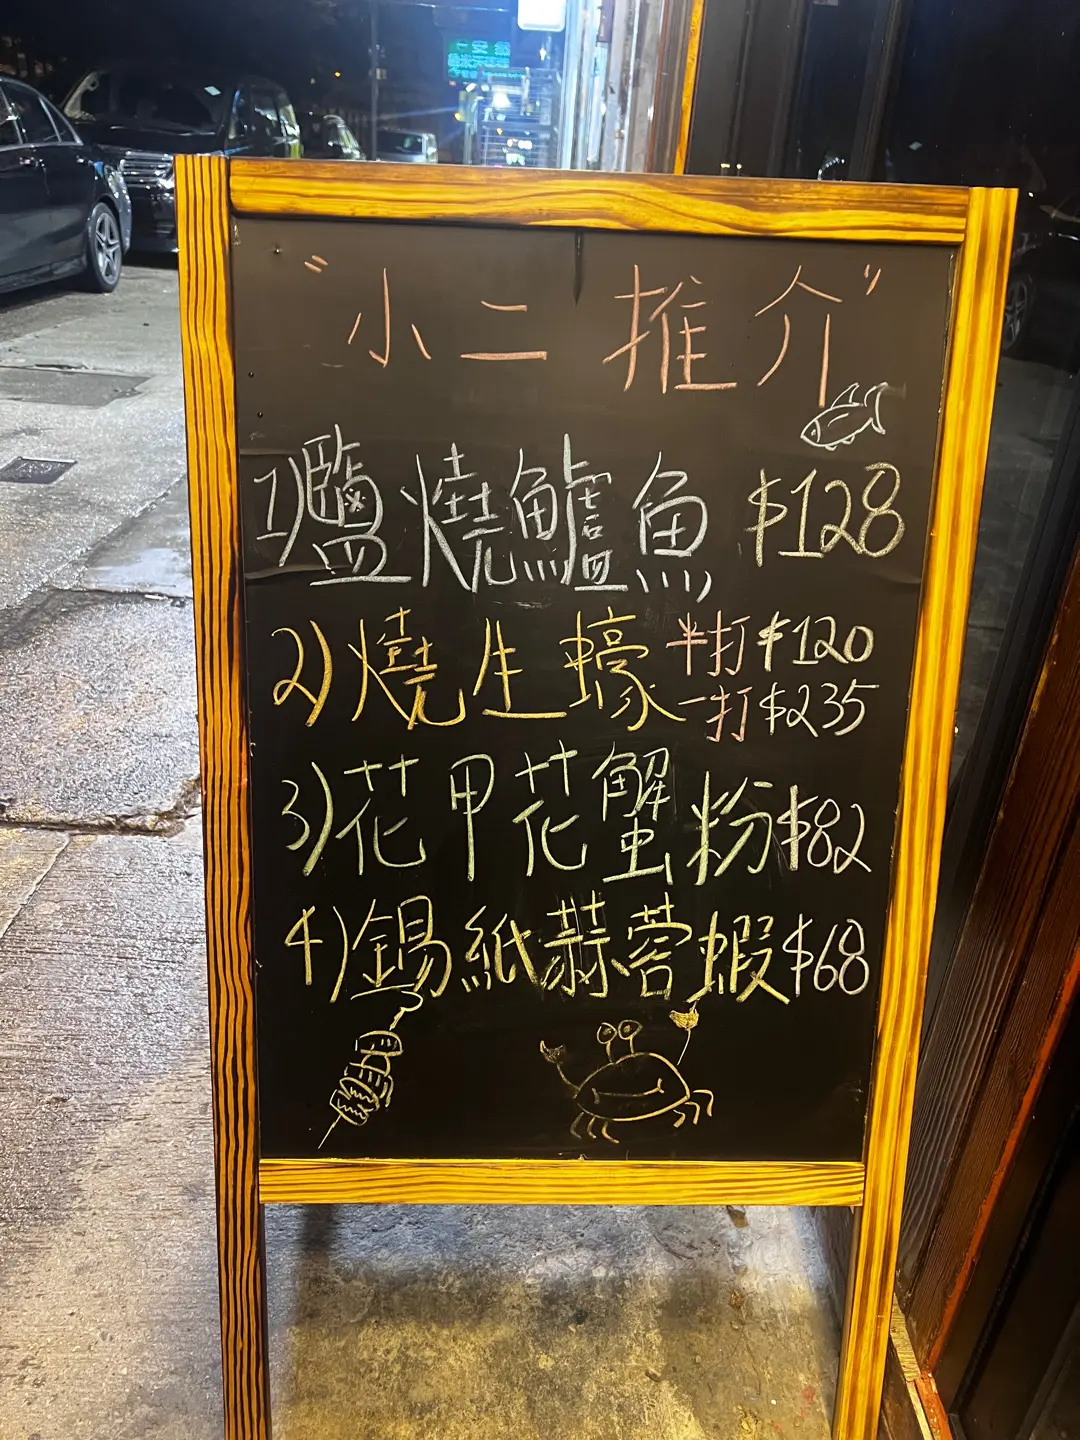 "小二推介"
1)鹽燒鱸魚 $128
2)燒生蠔 半打$120
一打$235
3)花甲花蟹粉$82
4)錫紙蒜蓉蝦$68